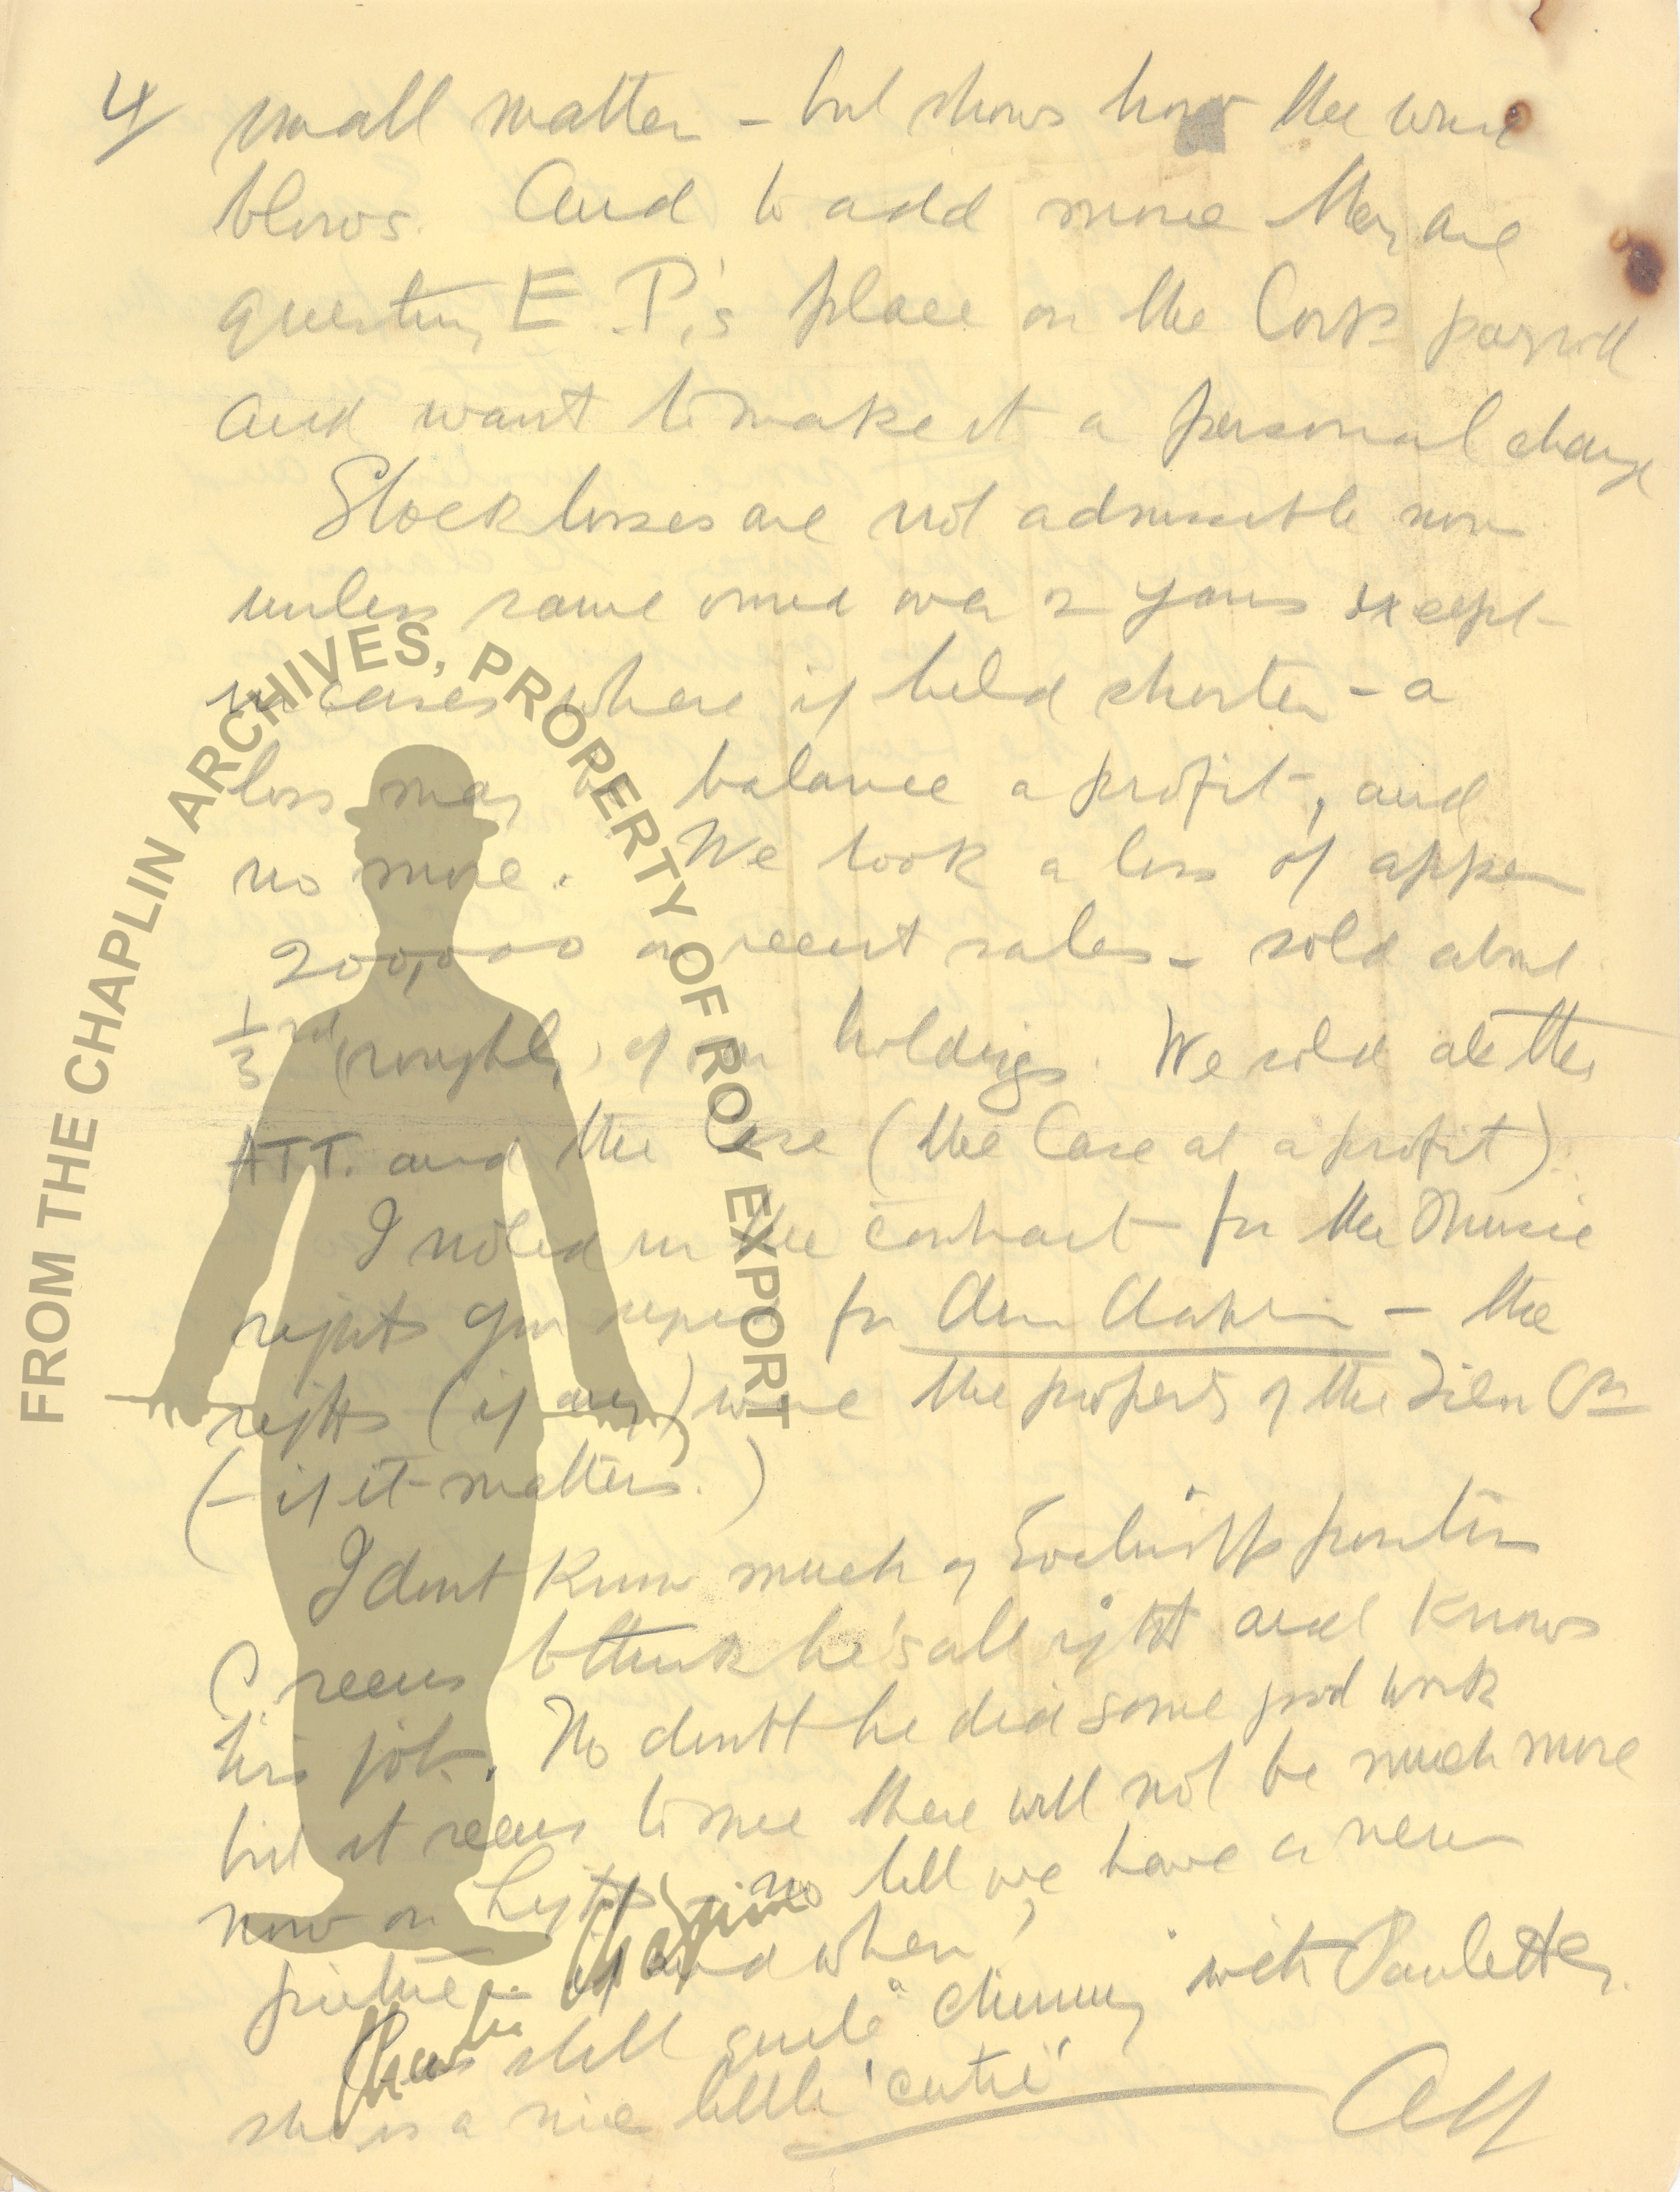 4/ small matter - but shows how the wind
blows. And to add more they are
questing E.P.'s place on the Corps payroll
and want to make it a personal charge
Stock losses are not admissible now
unless same owned over 2 years except
in cases where if held shorter - a
loss may be balance a profit, and
no more. We took a loss of approx
200,000 on recent sales - sold about
1/3 rd (roughly) of our holdings. We sold all the
ATT. and the Case (the Case at a profit).
I noted in the contract for the Music
rights for - the
rights (if any) were the property of the Film Co
(- if it matters.)
I dont know much of position
C. seems to think he's all right and knows
his job. No doubt he did some good work
but it seems to me there will not be much more
now on Lights till we have a new
picture - if and when.
C. is still quite "chummy" with Paulette.
she is a nice little 'cutie'
Alf
FROM THE CHAPLIN ARCHIVES, PROPERTY OF ROY EXPORT
Charlie Chaplin